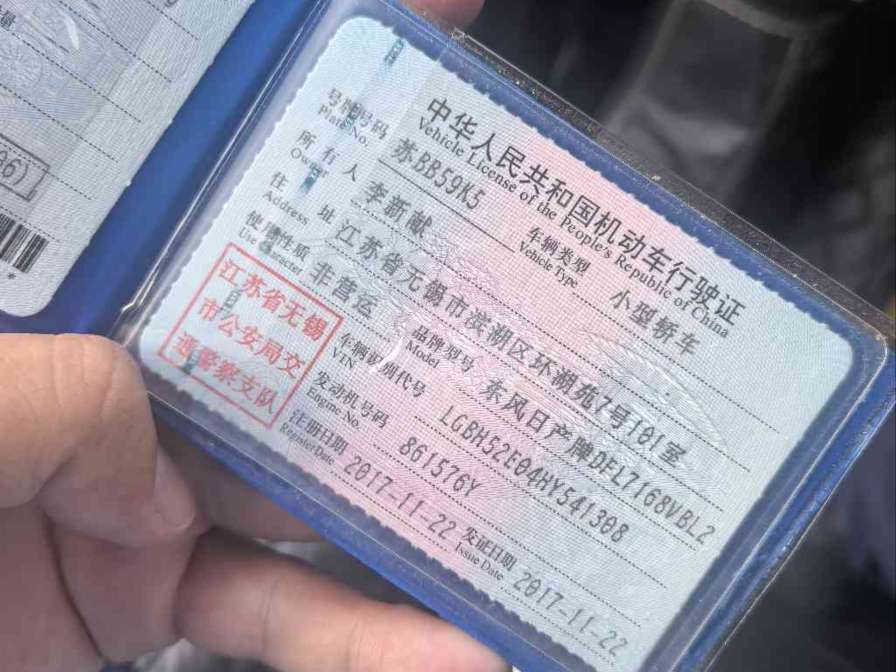 中华人民共和国机动车行驶证
Vehicle License of the People's Republic of China
号牌号码 苏BB59K5 车辆类型 小型轿车
Plate No. Vehicle Type
所有人 李新献
Owner
住址 江苏省无锡市滨湖区环湖苑7号101室
Address
使用性质 非营运 品牌型号 东风日产牌DFL7168VBL2
Use Character Model
江苏省无锡
市公安局交
通警察支队
车辆识别代号 LGBH52E04HY541308
VIN
发动机号码 861576Y
Engine No.
注册日期 2017-11-22 发证日期 2017-11-22
Register Date Issue Date
06)